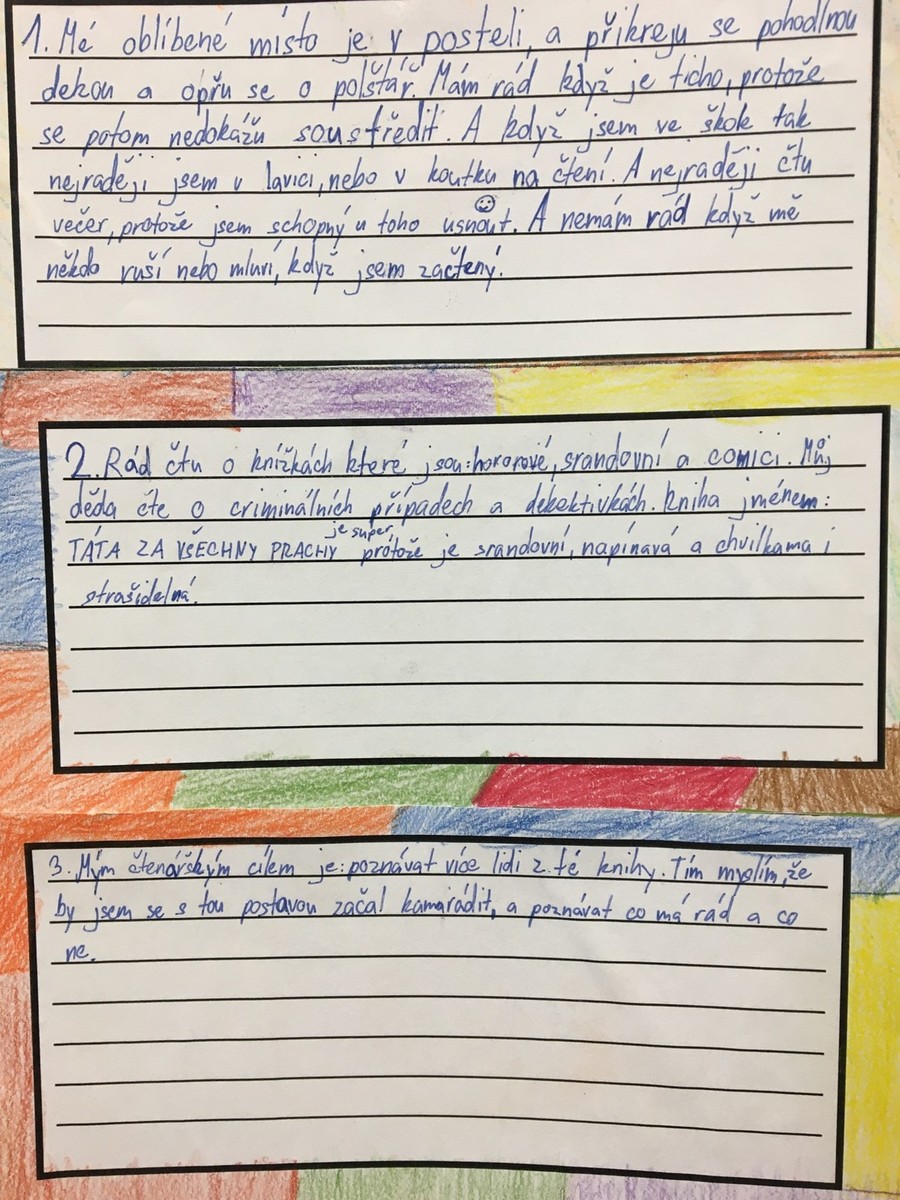 1. Mé oblíbené místo je v posteli, a přikreju se pohodlnou
dekou a opřu se o polštář. Mám rád když je ticho, protože
se potom nedokážu soustředit. A když jsem ve škole tak
nejraději jsem v lavici, nebo v koutku na čtení. A nejraději čtu
večer, protože jsem schopný u toho usnout. A nemám rád když mě
někdo ruší nebo mluví, když jsem začtený.
2. Rád čtu o knížkách které jsou: hororové, srandovní a comici. Můj
děda čte o criminálních případech a detektivkách. kniha jménem:
TÁTA ZA VŠECHNY PRACHY je super protože je srandovní, napínavá a chvilkama i
strašidelná.
3. Mým čtenářským cílem je: poznávat více lidi z té knihy. Tím myslím, že
by jsem se s tou postavou začal kamarádit, a poznávat co má rád a co
ne.